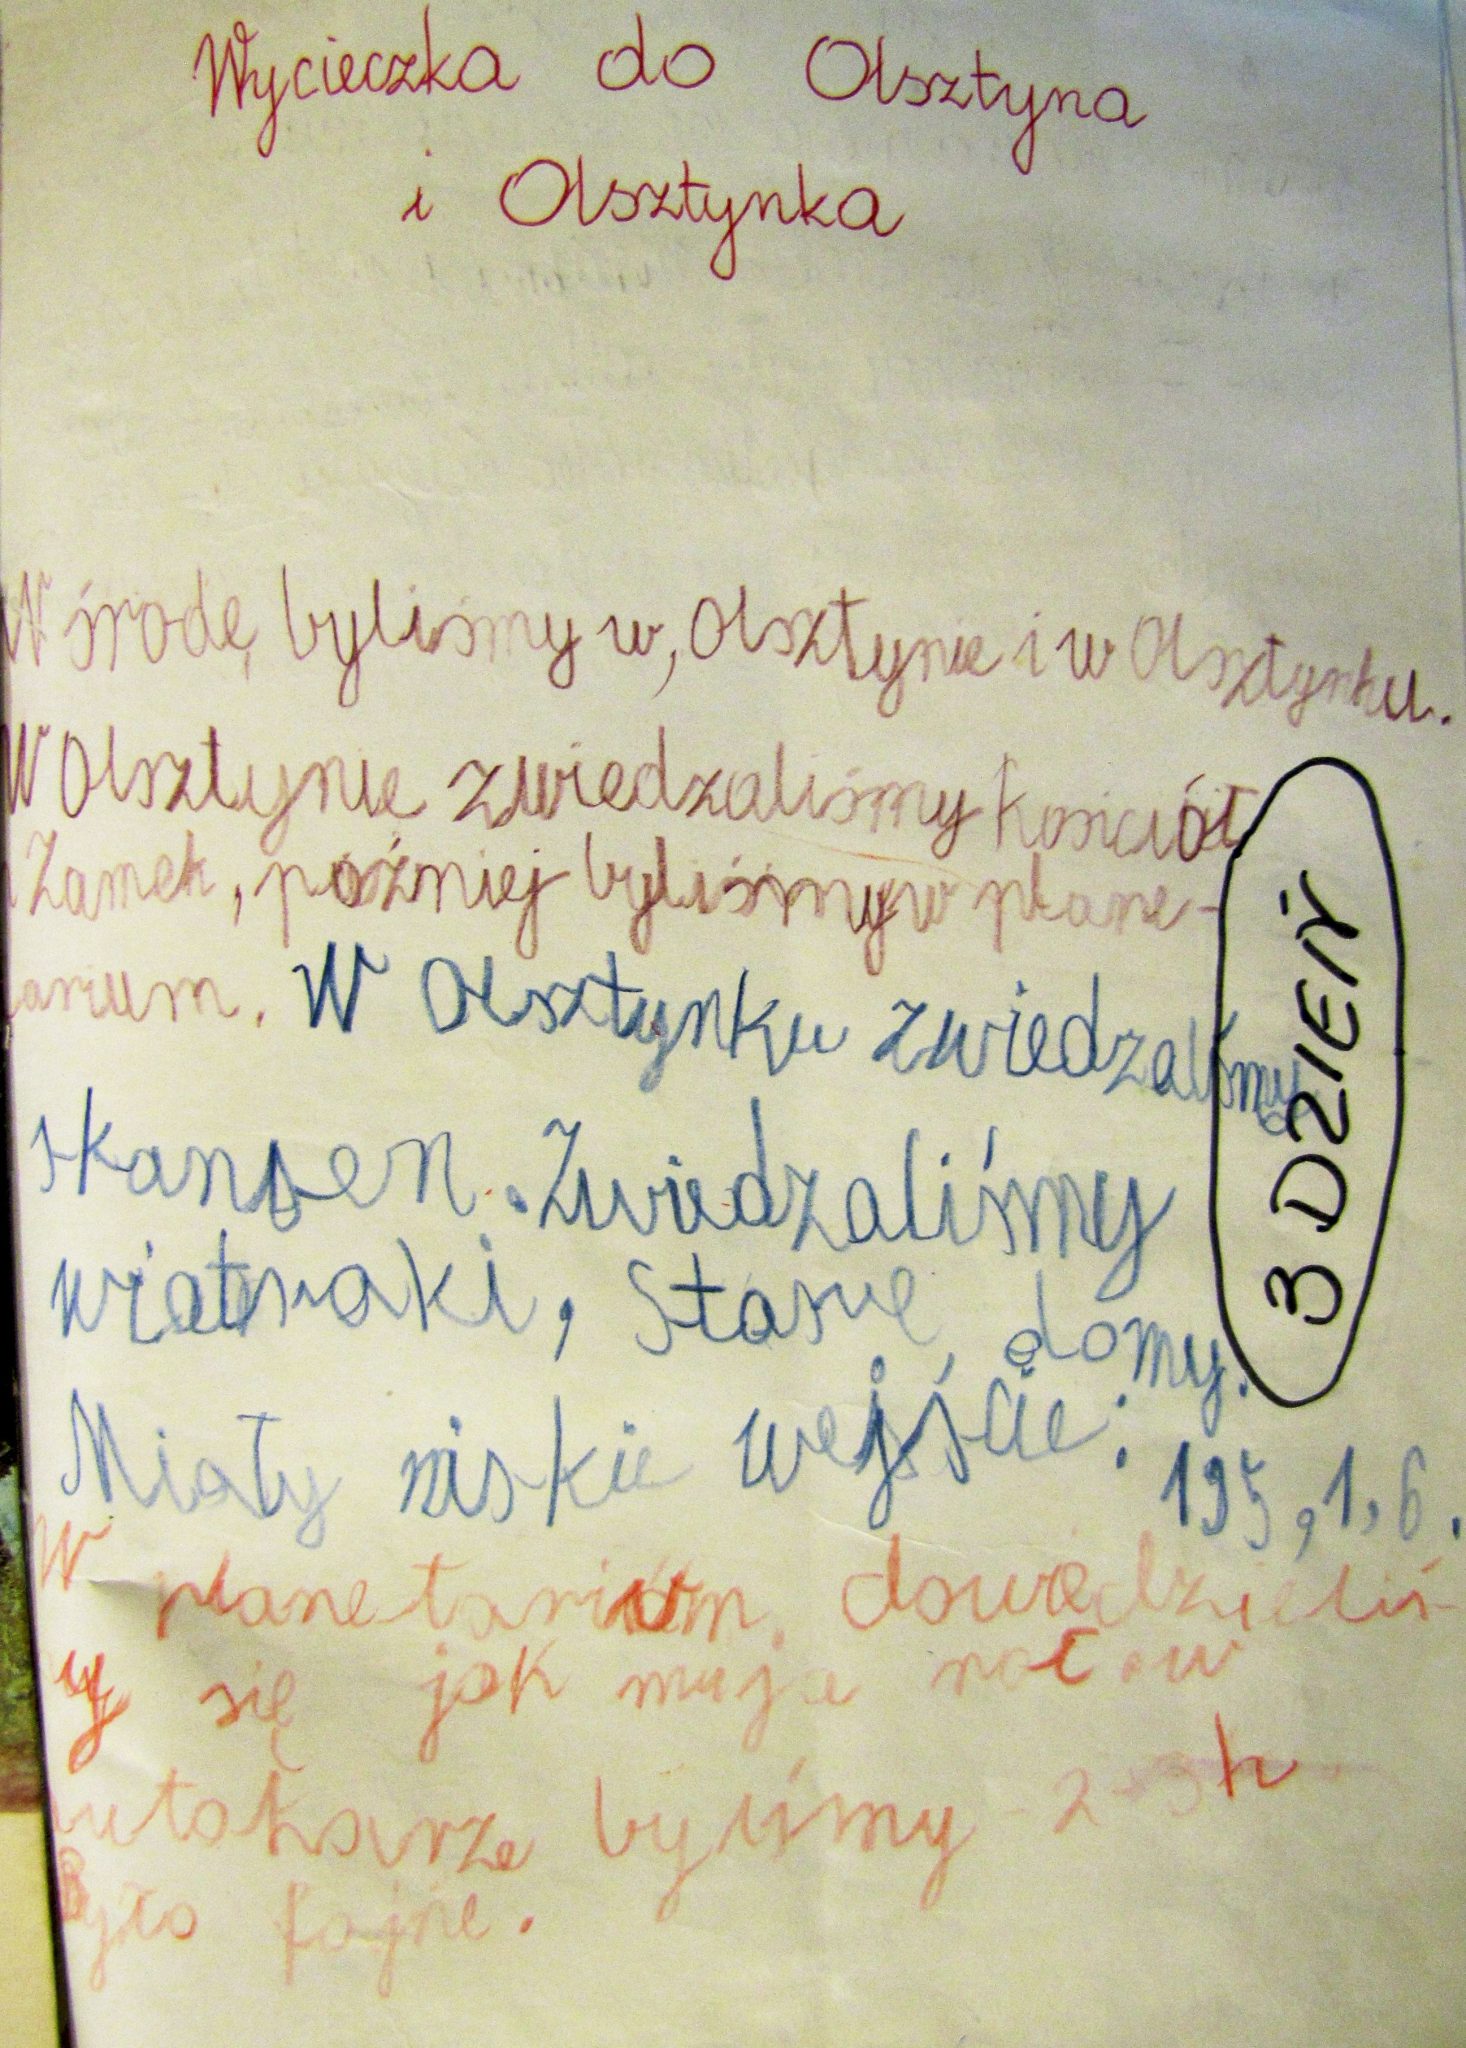 Wycieczka do Olsztyna
i Olsztynka
W środę byliśmy w, Olsztynie i w Olsztynku.
W Olsztynie zwiedzaliśmy kościół
i Zamek, później byliśmy w plane-
tarium. W Olsztynku zwiedzaliśmy
skansen. Zwiedzaliśmy
wiatraki, Stare domy.
Miały niskie wejście: 195, 1,6.
W planetarium dowiedzieliś-
my się jak
autokarze byliśmy 2-3h
Było fajne.
3 DZIEŃ